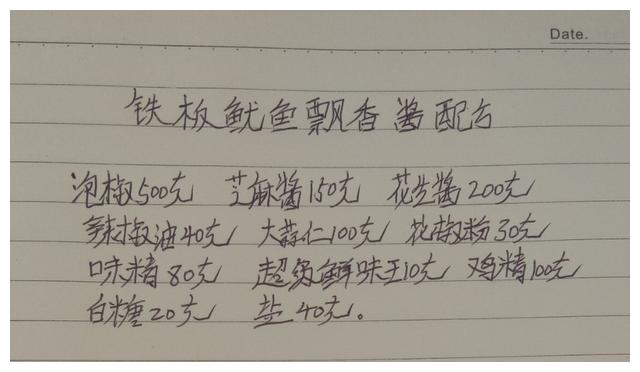 Date.
铁板鱿鱼飘香酱配方
泡椒500克 芝麻酱150克 花生酱200克
辣椒油40克 大蒜仁100克 花椒粉30克
味精80克 超级鲜味王10克 鸡精100克
白糖20克 盐40克。